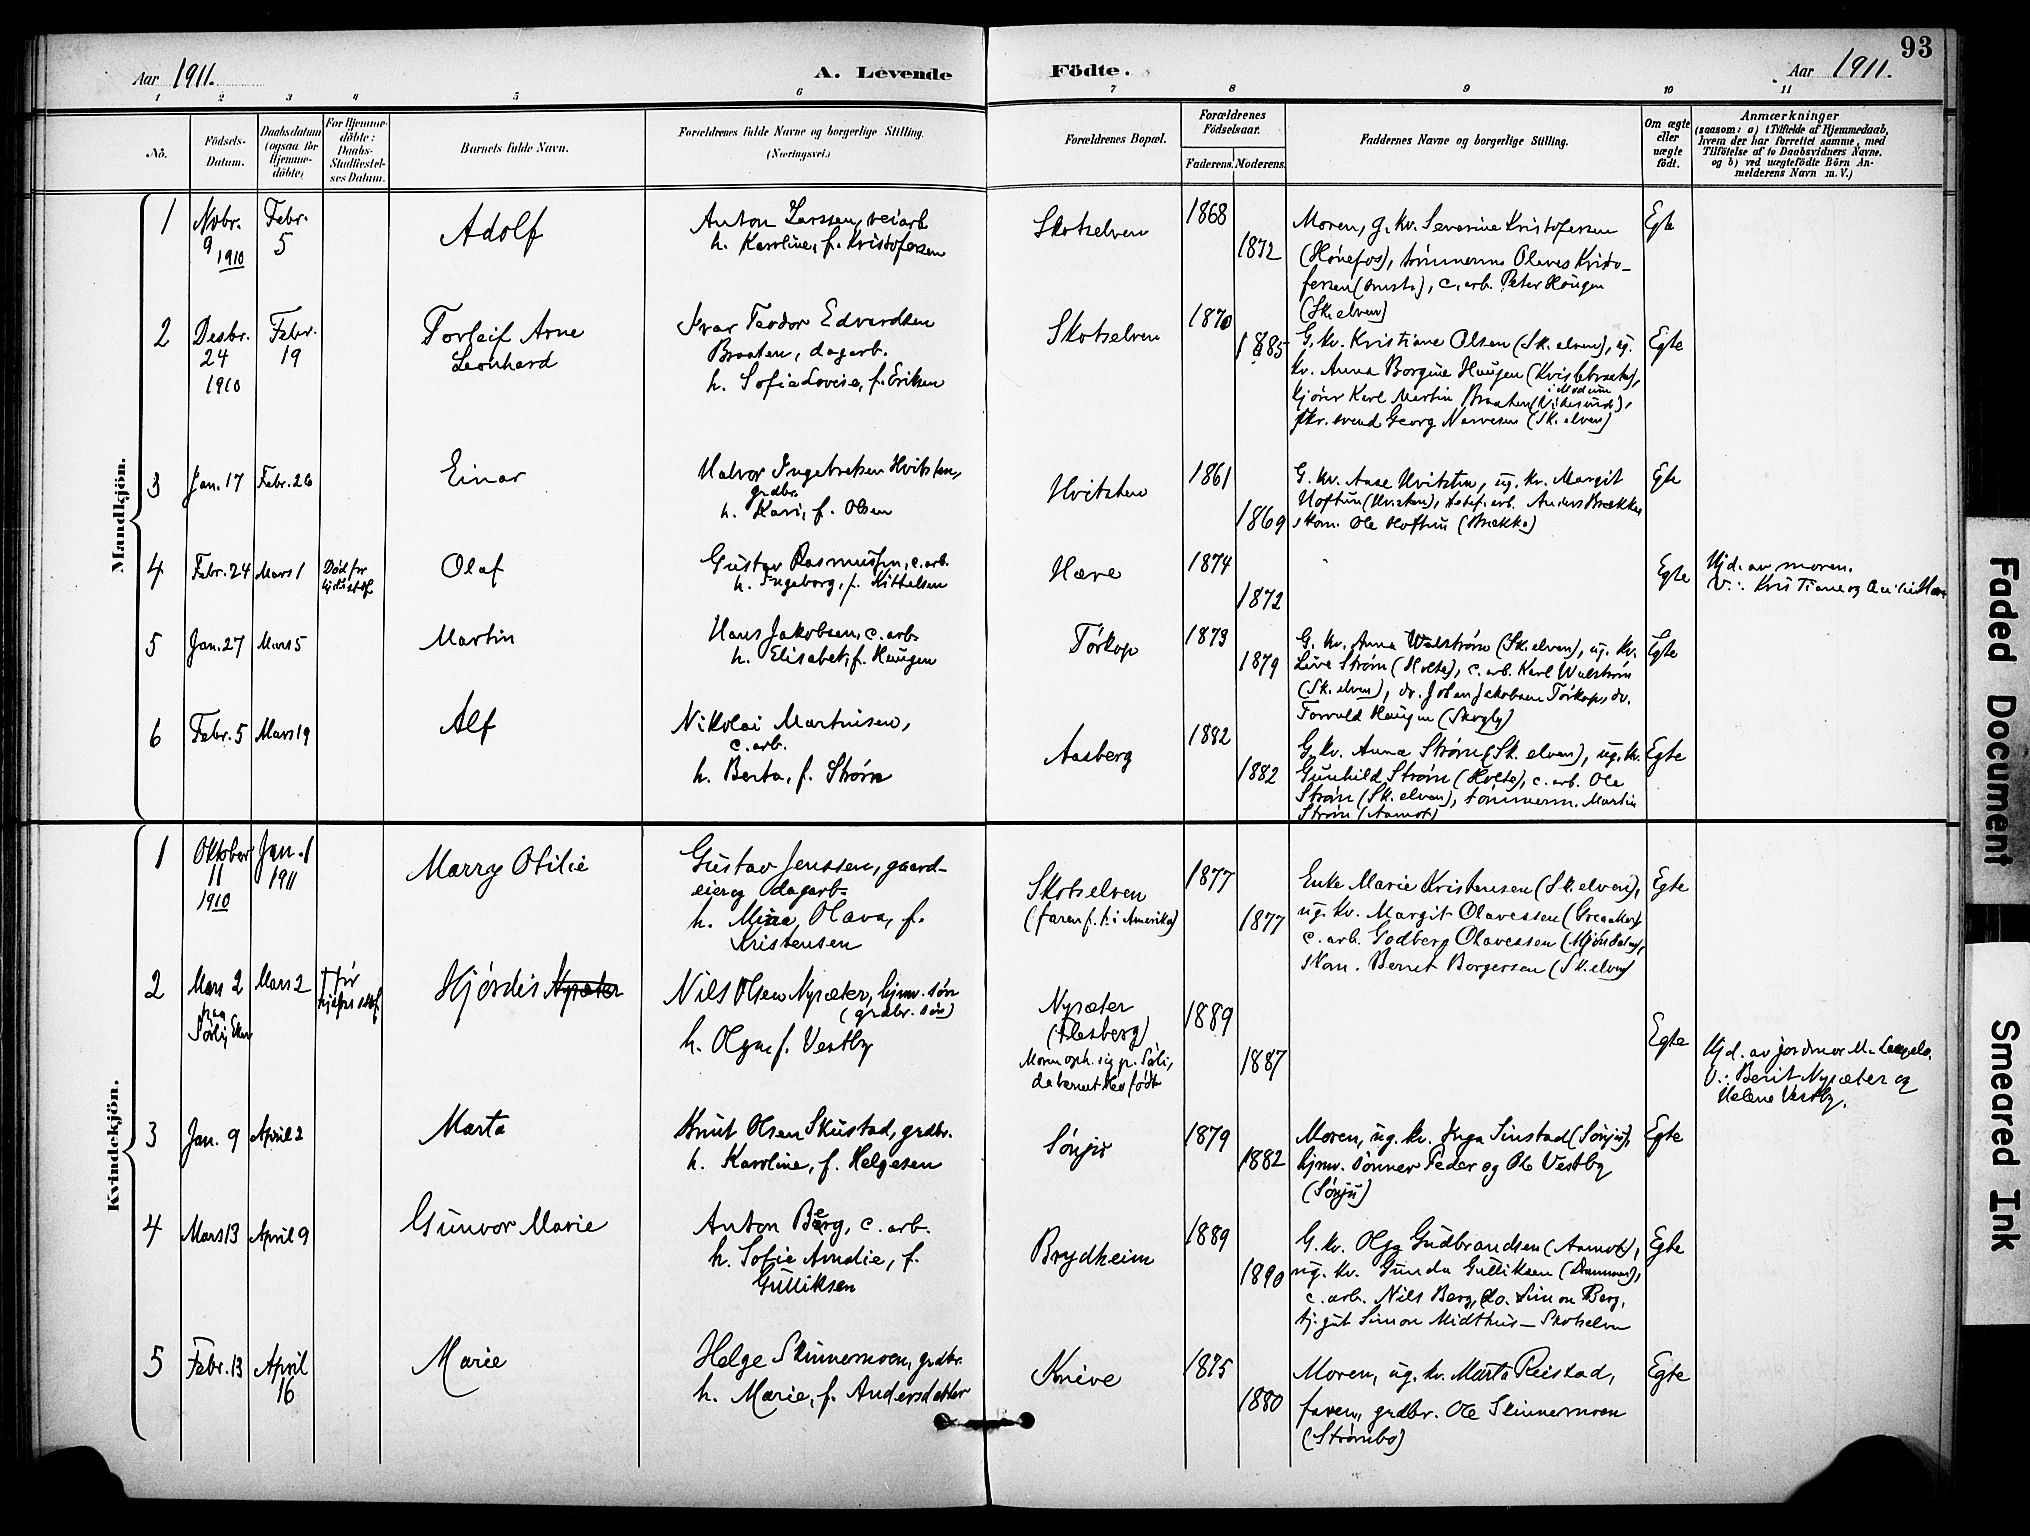 93
Aar 1911.
A. Levende Födte.
Aar 1911.
1 2 3 4 5 6 7 8 9 10 11
No.
Födsels-Datum.
Daabsdatum (ogsaa for Hjemme-döbte)
For Hjemme-döbte: Daabs-Stadfæstel-ses Datum.
Barnets fulde Navn.
Forældrenes fulde Navne og borgerlige Stilling.
(Næringsvei.)
Forældrenes Bopæl.
Forældrenes Födselsaar.
Faderens. Moderens.
Faddernes Navne og borgerlige Stilling.
Om ægte eller uægte födt.
Anmærkninger
(saasom: a) i Tilfælde af Hjemmedaab,
hvem der har forrettet samme, med
Tilföielse af to Daabsvidners Navne,
og b) ved uægtefödte Börn An-
melderens Navn m. V.)
Mandkjön.
1 Novbr. 9 1910 Febr. 5
Adolf
Anton Larssen, veiarb
h. Karoline, f. Kristofersen
Skotselven
1868
1872
Moren, g. kv. Severine Kristofersen
(Hønefos), tømmerm. Olaves Kristo-
fersen, c. arb. Peter Haugen
(Sk.elven)
Egte
2 Desbr. 24 1910 Febr. 19
Torleif Arne
Leonhard
Ivar Teodor Edvardsen
Braaten, dagarb.
h. Sofie Lovise, f. Eriksen
Skotselven
1870
1885
G. kv. Kristiane Olsen (Sk. elven), ug.
kv. Anna Borgine Haugen
kjører Karl Martin Braaten
i Modum
svend Georg Narvesen (Sk. elven)
Egte
3 Jan. 17 Febr. 26
Einar
Halvor Ingebretsen Hvitsten,
grdbr.
h. Kari, f. Olsen
Hvitsten
1861
1869
G. kv. Aase Hvitsten, ug. kv. Margit
Hoftun (Hvitsten), arb. Anders Brække
skom. Ole Hoftun (Brække)
Egte
4 Febr. 24 Mars 1
Død før
Olaf
Gustav Rasmussen, c. arb.
h. Ingeborg, f. Kittelsen
Hære
1874
1872
Egte
Hjd. av moren.
V.: Kristiane og
5 Jan. 27 Mars 5
Martin
Hans Jakobsen, c. arb.
h. Elisabet, f. Haugen
Tørkop
1873
1879
G. kv. Anna Walstrøm (Sk. elven), ug. kv.
Live Strøm (Holte), c. arb. Karl Walstrøm
(Sk. elven), do. Johan Jakobsen Tørkop, do.
Torvald Haugen (Skogly)
Egte
6 Febr. 5 Mars 19
Alf
Nikolai Martinisen,
c. arb.
h. Berta, f. Strøm
Aasberg
1882
1882
G. kv. Anna Strøm (Sk. elven), ug. kv.
Gunhild Strøm (Holte), c. arb. Ole
Strøm (Sk. elven), tømmerm. Martin
Strøm (Aamot)
Egte
Kvindekjön.
1 Oktober 11 1910 Jan. 1 1911
Marry Otilie
Gustav Jenssen, gaard-
eier og dagarb.
h. Mina Olava, f.
Kristensen
Skotselven
(faren f. t. i Amerika)
1877
1877
Enke Marie Kristensen (Sk. elven),
ug. kv. Margit Olavessen (Greaaker)
c. arb. Godberg Olavessen (Mjøndalen),
skom. Bernt Borgersen (Sk. elven)
Egte
2 Mars 2 paa Sørli, Eker Mars 2
† før
Hjørdis Nysæter
Nils Olsen Nysæter, hjmv. søn
(grdbr. søn)
h. Olga f. Vestby
Nysæter
(Flesberg)
Moren oph. sig p. Sørli,
da barnet blev født
1889
1887
Egte
Hjd. av jordmor M.
V.: Berit Nysæter og
Helene Vestby.
3 Jan. 9 April 2
Marta
Knut Olsen Skustad, grdbr.
h. Karoline, f. Helgesen
Sønju
1879
1882
Moren, ug. kv. Inga Sinstad (Sønju),
hjmv. sønner Peder og Ole Vestby
(Sønju)
Egte
4 Mars 13 April 9
Gunvor Marie
Anton Berg, c. arb.
h. Sofie Amalie, f.
Gulliksen
Brydheim
1889
1890
G. kv. Olga Gudbrandsen (Aamot),
ug. kv. Gunda Gulliksen (Drammen),
c. arb. Nils Berg, do. Simon Berg,
tj. gut Simon Midthus – Skotselven
Egte
5 Febr. 13 April 16
Marie
Helge Skinnemoen, grdbr.
h. Marie, f. Andersdatter
Knive
1875
1880
Moren, ug. kv. Marta Reistad,
faren, grdbr. Ole Skinnemoen
(Strømbo)
Egte
Faded Document
Smeared Ink